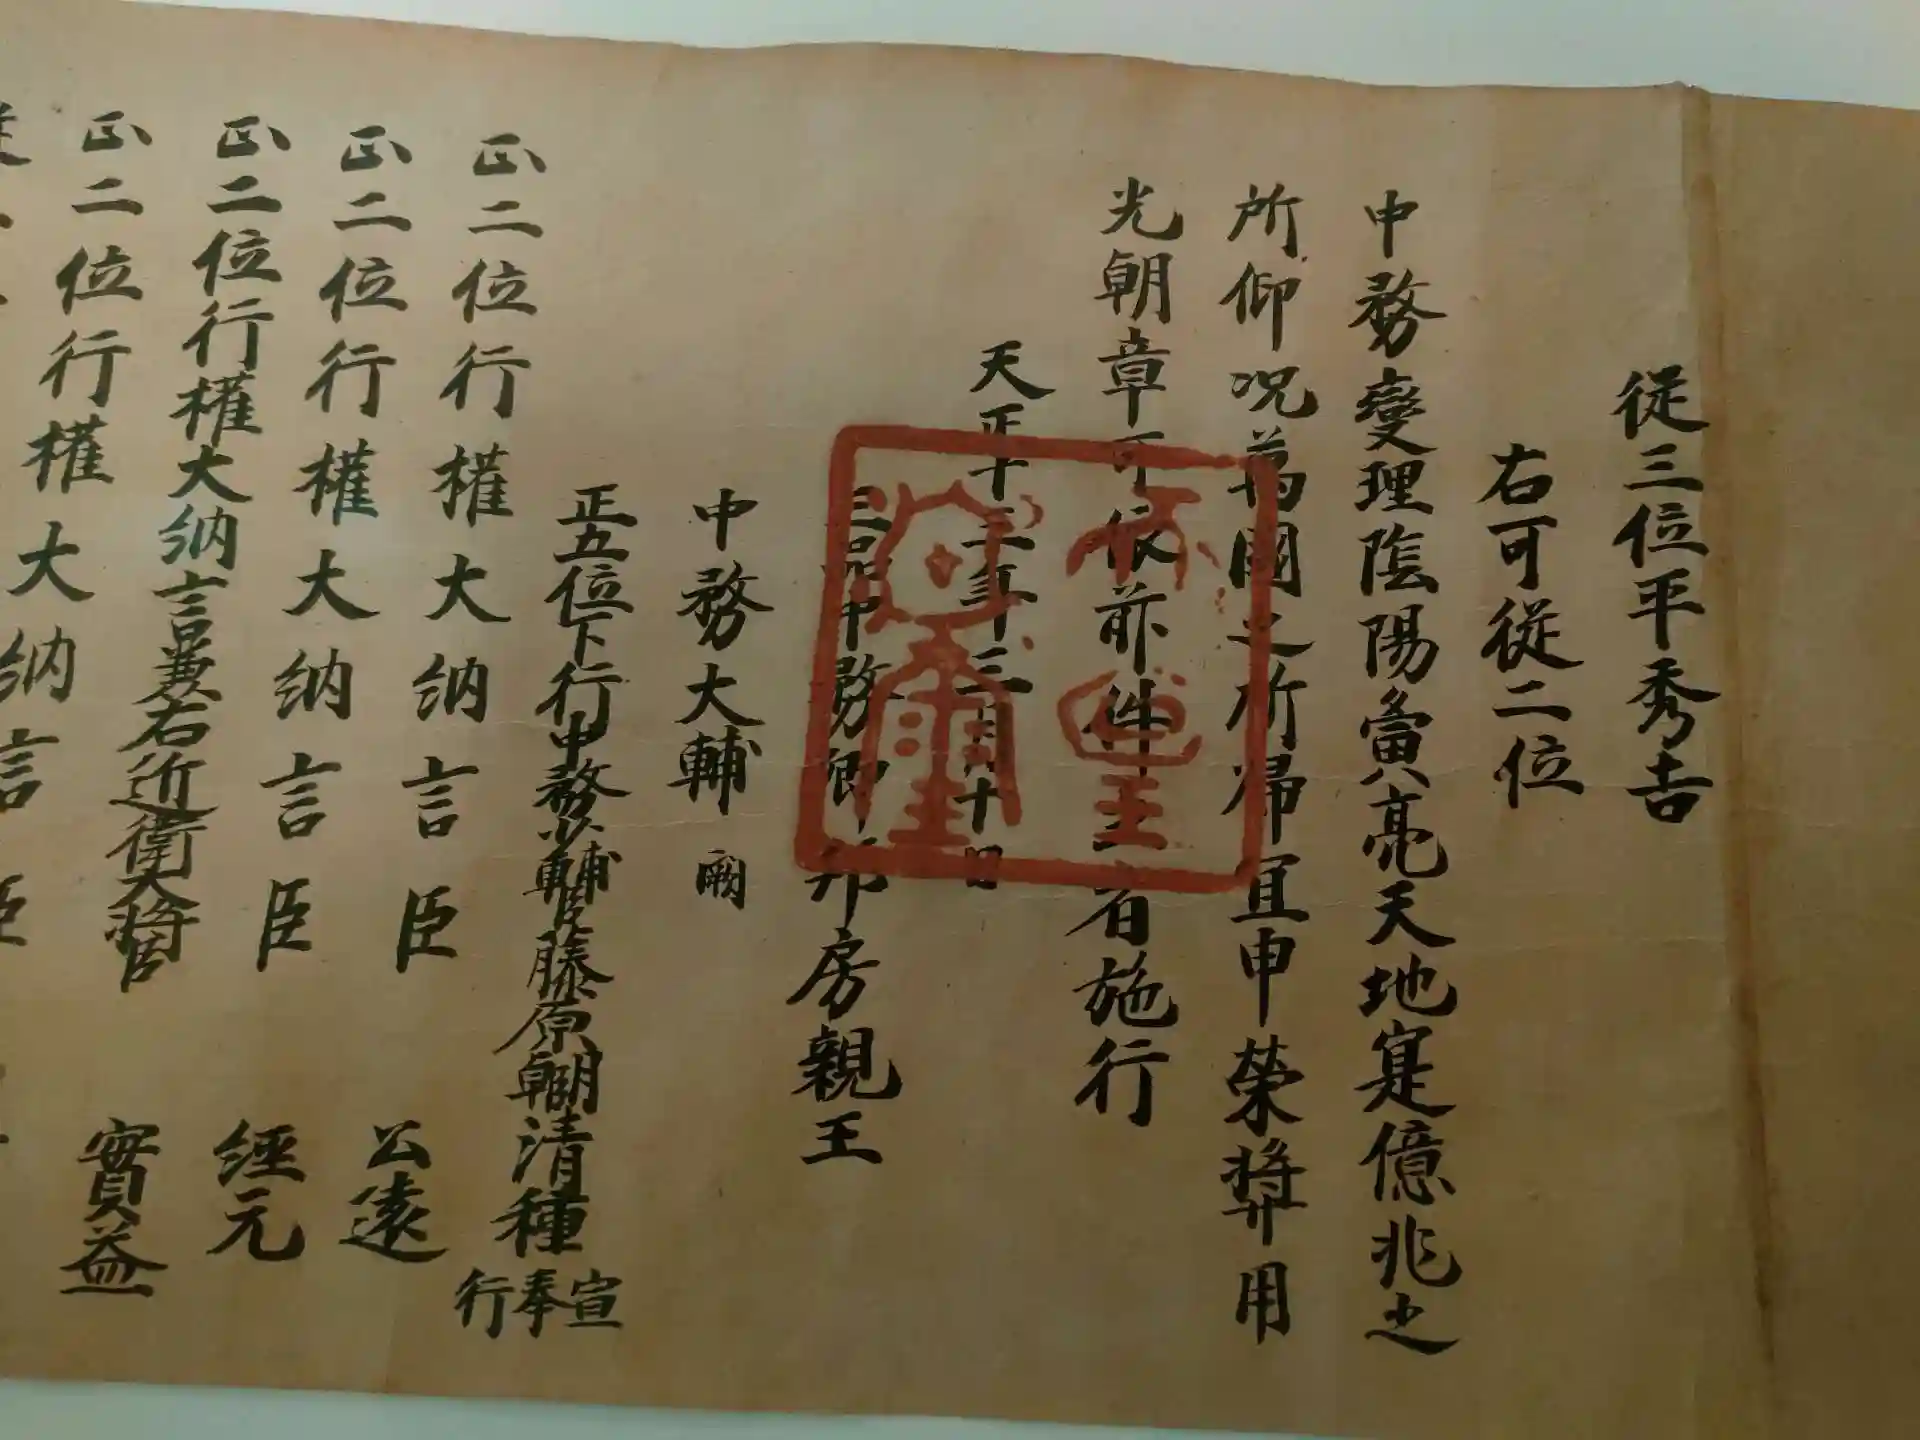 從三位平秀吉
右可従二位
中務燮理陰陽寅亮天地寔億兆之
所仰况萬國之所帰宜申榮弉用
光朝章可依前件主者施行
天正十三年三月十日
三品中務卿邦房親王
中務大輔 闕
正五位下行中務少輔臣藤原朝臣清種
宣
奉
行
正二位行權大納言臣 公遠
正二位行權大納言臣 經元
正二位行權大納言兼右近衛大将臣 實益
正二位行權大納言臣
天皇御璽